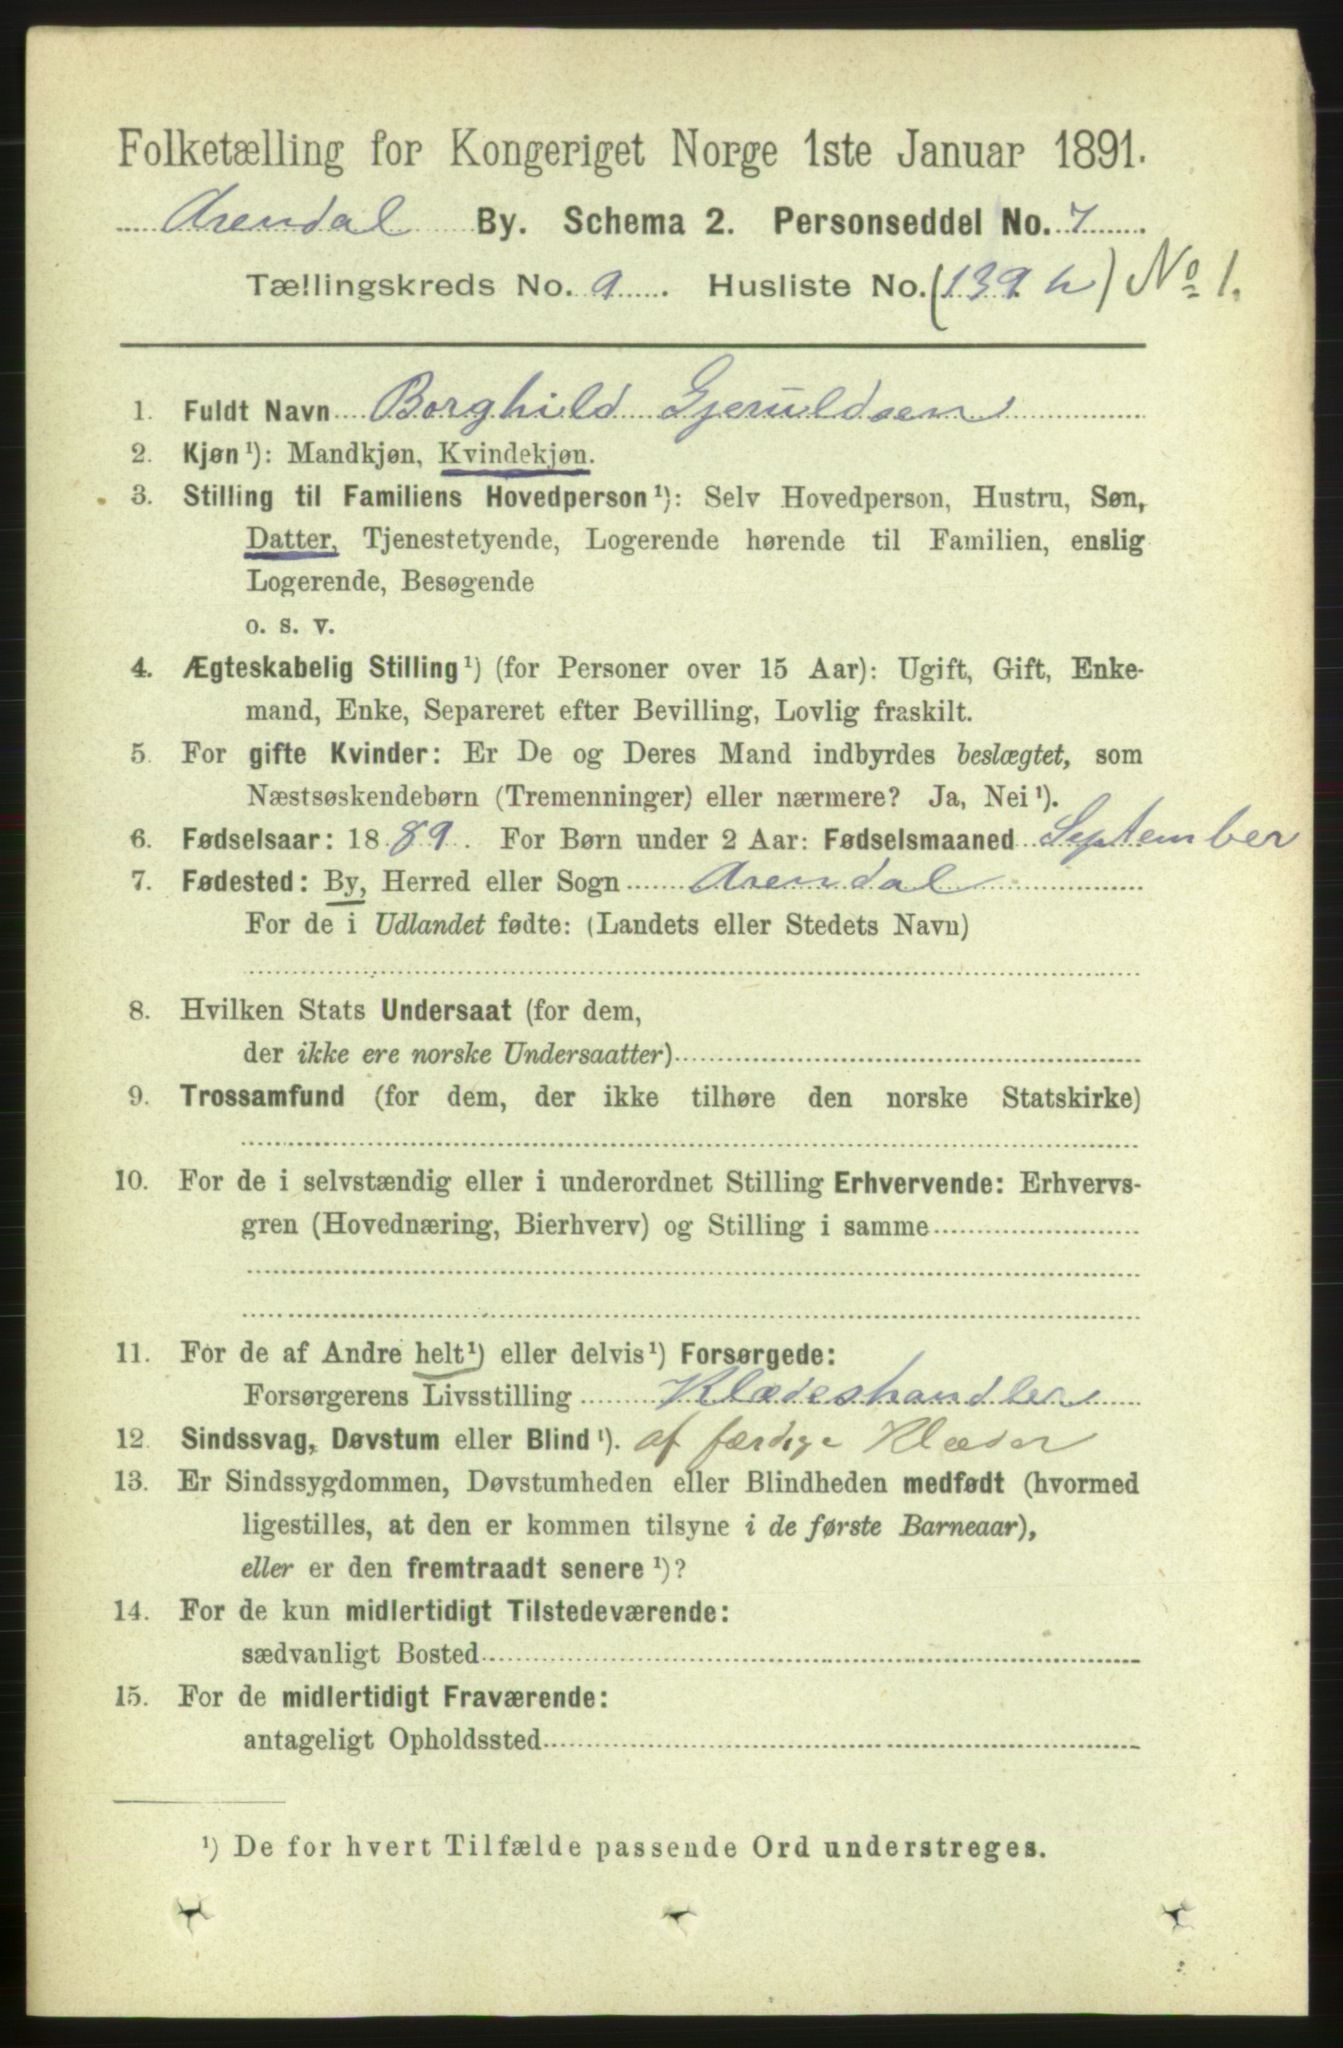 Folketælling for Kongeriget Norge 1ste Januar 1891.
Arendal By. Schema 2. Personseddel No. 7
Tællingskreds No. 9 Husliste No. (139 h) No 1.
1. Fuldt Navn Borghild Gjeruldsen
2. Kjøn¹): Mandkjøn, Kvindekjøn.
3. Stilling til Familiens Hovedperson¹): Selv Hovedperson, Hustru, Søn,
Datter, Tjenestetyende, Logerende hørende til Familien, enslig
Logerende, Besøgende
o. s. v.
4. Ægteskabelig Stilling¹) (for Personer over 15 Aar): Ugift, Gift, Enke-
mand, Enke, Separeret efter Bevilling, Lovlig fraskilt.
5. For gifte Kvinder: Er De og Deres Mand indbyrdes beslægtet, som
Næstsøskendebørn (Tremenninger) eller nærmere? Ja, Nei¹).
6. Fødselsaar: 1889. For Børn under 2 Aar: Fødselsmaaned September
7. Fødested: By, Herred eller Sogn Arendal
For de i Udlandet fødte: (Landets eller Stedets Navn)
8. Hvilken Stats Undersaat (for dem,
der ikke ere norske Undersaatter)
9. Trossamfund (for dem, der ikke tilhøre den norske Statskirke)
10. For de i selvstændig eller i underordnet Stilling Erhvervende: Erhvervs-
gren (Hovednæring, Bierhverv) og Stilling i samme
11. For de af Andre helt¹) eller delvis¹) Forsørgede:
Forsørgerens Livsstilling Klædeshandler
12. Sindssvag, Døvstum eller Blind¹). af færdige Klæder
13. Er Sindssygdommen, Døvstumheden eller Blindheden medfødt (hvormed
ligestilles, at den er kommen tilsyne i de første Barneaar),
eller er den fremtraadt senere¹)?
14. For de kun midlertidigt Tilstedeværende:
sædvanligt Bosted
15. For de midlertidigt Fraværende:
antageligt Opholdssted
¹) De for hvert Tilfælde passende Ord understreges.